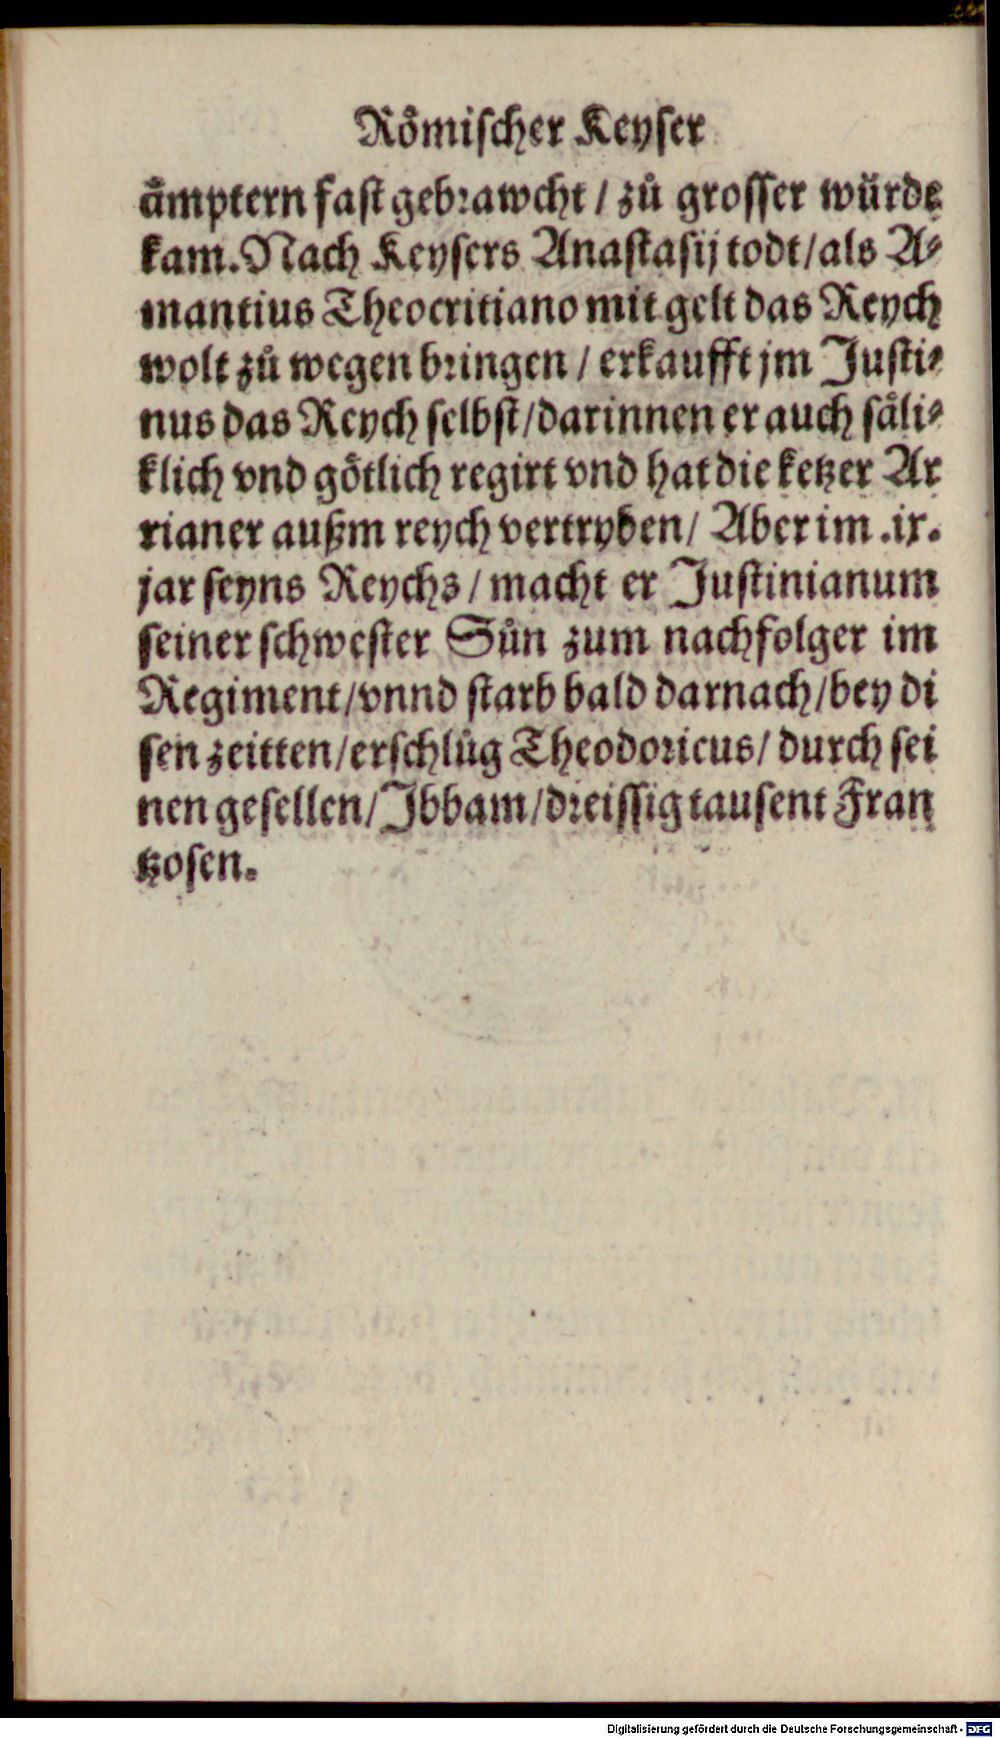 Rômischer Keyser
ämptern fast gebrawcht / zů grosser würde
kam. Nach Keysers Anastasij todt / als A⸗
mantius Theocritiano mit gelt das Reych
wolt zů wegen bringen / erkaufft jm Justi⸗
nus das Reych selbst / darinnen er auch säli⸗
klich vnd götlich regirt vnd hat die ketzer Ar
rianer außm reych vertryben / Aber im .ix.
jar seyns Reychs / macht er Justinianum
seiner schwester Sůn zum nachfolger im
Regiment / vnnd starb bald darnach / bey di
sen zeitten / erschlůg Theodoricus / durch sei
nen gesellen / Jbbam / dreissig tausent Fran
tzosen.
Digitalisierung gefördert durch die Deutsche Forschungsgemeinschaft - DFG